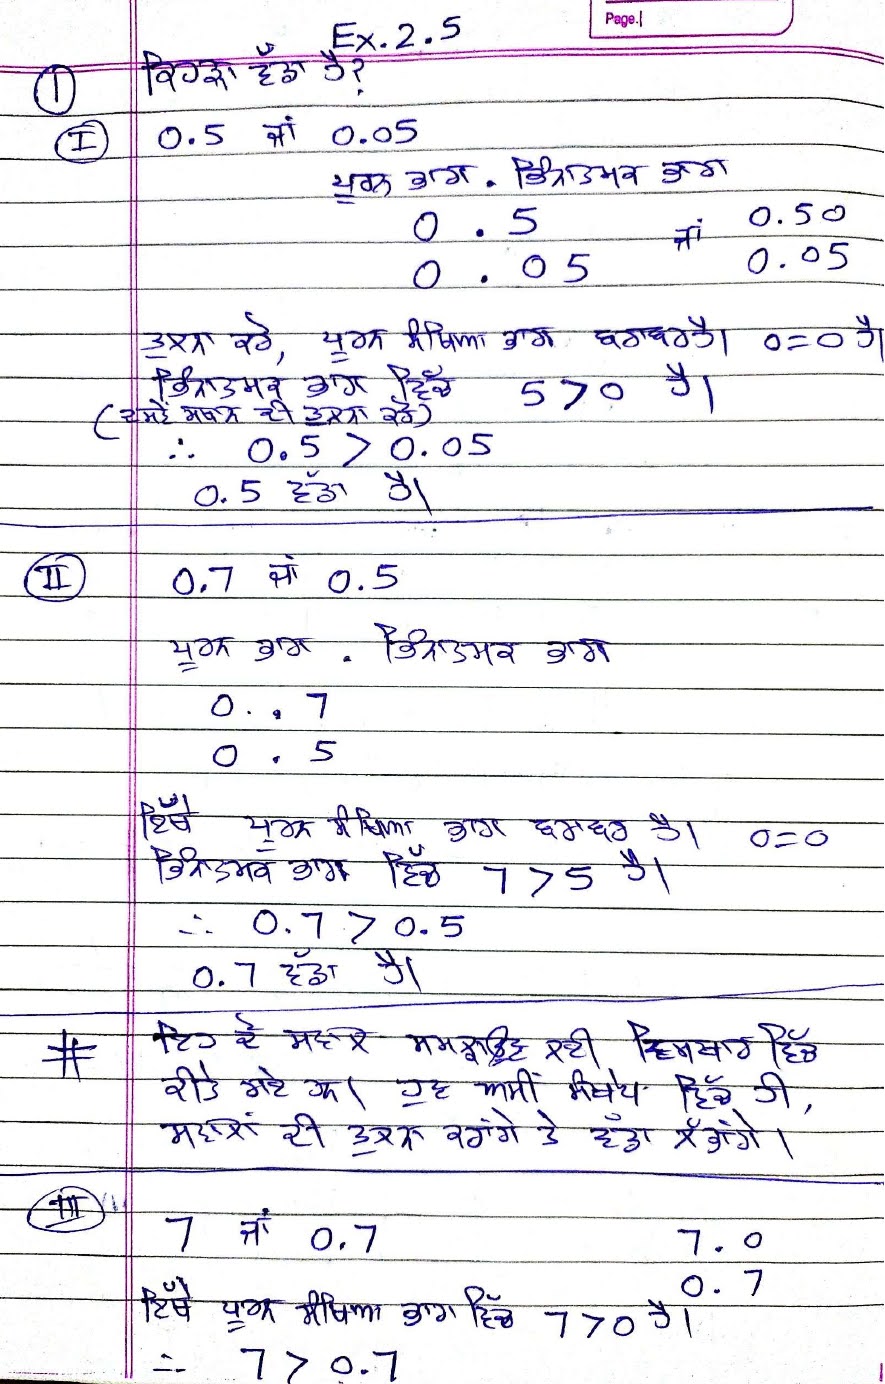 Page.
Ex. 2.5
① ਕਿਹੜਾ ਵੱਡਾ ਹੈ?
(I) 0.5 ਜਾਂ 0.05
ਪੂਰਨ ਭਾਗ . ਭਿੰਨਾਤਮਕ ਭਾਗ
0 . 5 ਜਾਂ 0.50
0 . 05 0.05
ਤੁਲਨਾ ਕਰੋ, ਪੂਰਨ ਸੰਖਿਆ ਭਾਗ ਬਰਾਬਰ ਹੈ। 0=0 ਹੈ।
ਭਿੰਨਾਤਮਕ ਭਾਗ ਵਿੱਚ 5>0 ਹੈ।
(ਦਸਵੇਂ ਸਥਾਨ ਦੀ ਤੁਲਨਾ ਕਰੋ)
∴ 0.5 > 0.05
0.5 ਵੱਡਾ ਹੈ।
(II) 0.7 ਜਾਂ 0.5
ਪੂਰਨ ਭਾਗ . ਭਿੰਨਾਤਮਕ ਭਾਗ
0 . 7
0 . 5
ਇੱਥੇ ਪੂਰਨ ਸੰਖਿਆ ਭਾਗ ਬਰਾਬਰ ਹੈ। 0=0
ਭਿੰਨਾਤਮਕ ਭਾਗ ਵਿੱਚ 7>5 ਹੈ।
∴ 0.7 > 0.5
0.7 ਵੱਡਾ ਹੈ।
# ਇਹ ਦੋ ਸਵਾਲ ਸਮਝਾਉਣ ਲਈ ਵਿਸਥਾਰ ਵਿੱਚ
ਕੀਤੇ ਗਏ ਹਨ। ਹੁਣ ਅਸੀਂ ਸੰਖੇਪ ਵਿੱਚ ਹੀ,
ਸਵਾਲਾਂ ਦੀ ਤੁਲਨਾ ਕਰਾਂਗੇ ਤੇ ਵੱਡਾ ਲੱਭਾਂਗੇ।
(III) 7 ਜਾਂ 0.7 7.0
0.7
ਇੱਥੇ ਪੂਰਨ ਸੰਖਿਆ ਭਾਗ ਵਿੱਚ 7>0 ਹੈ।
∴ 7 > 0.7